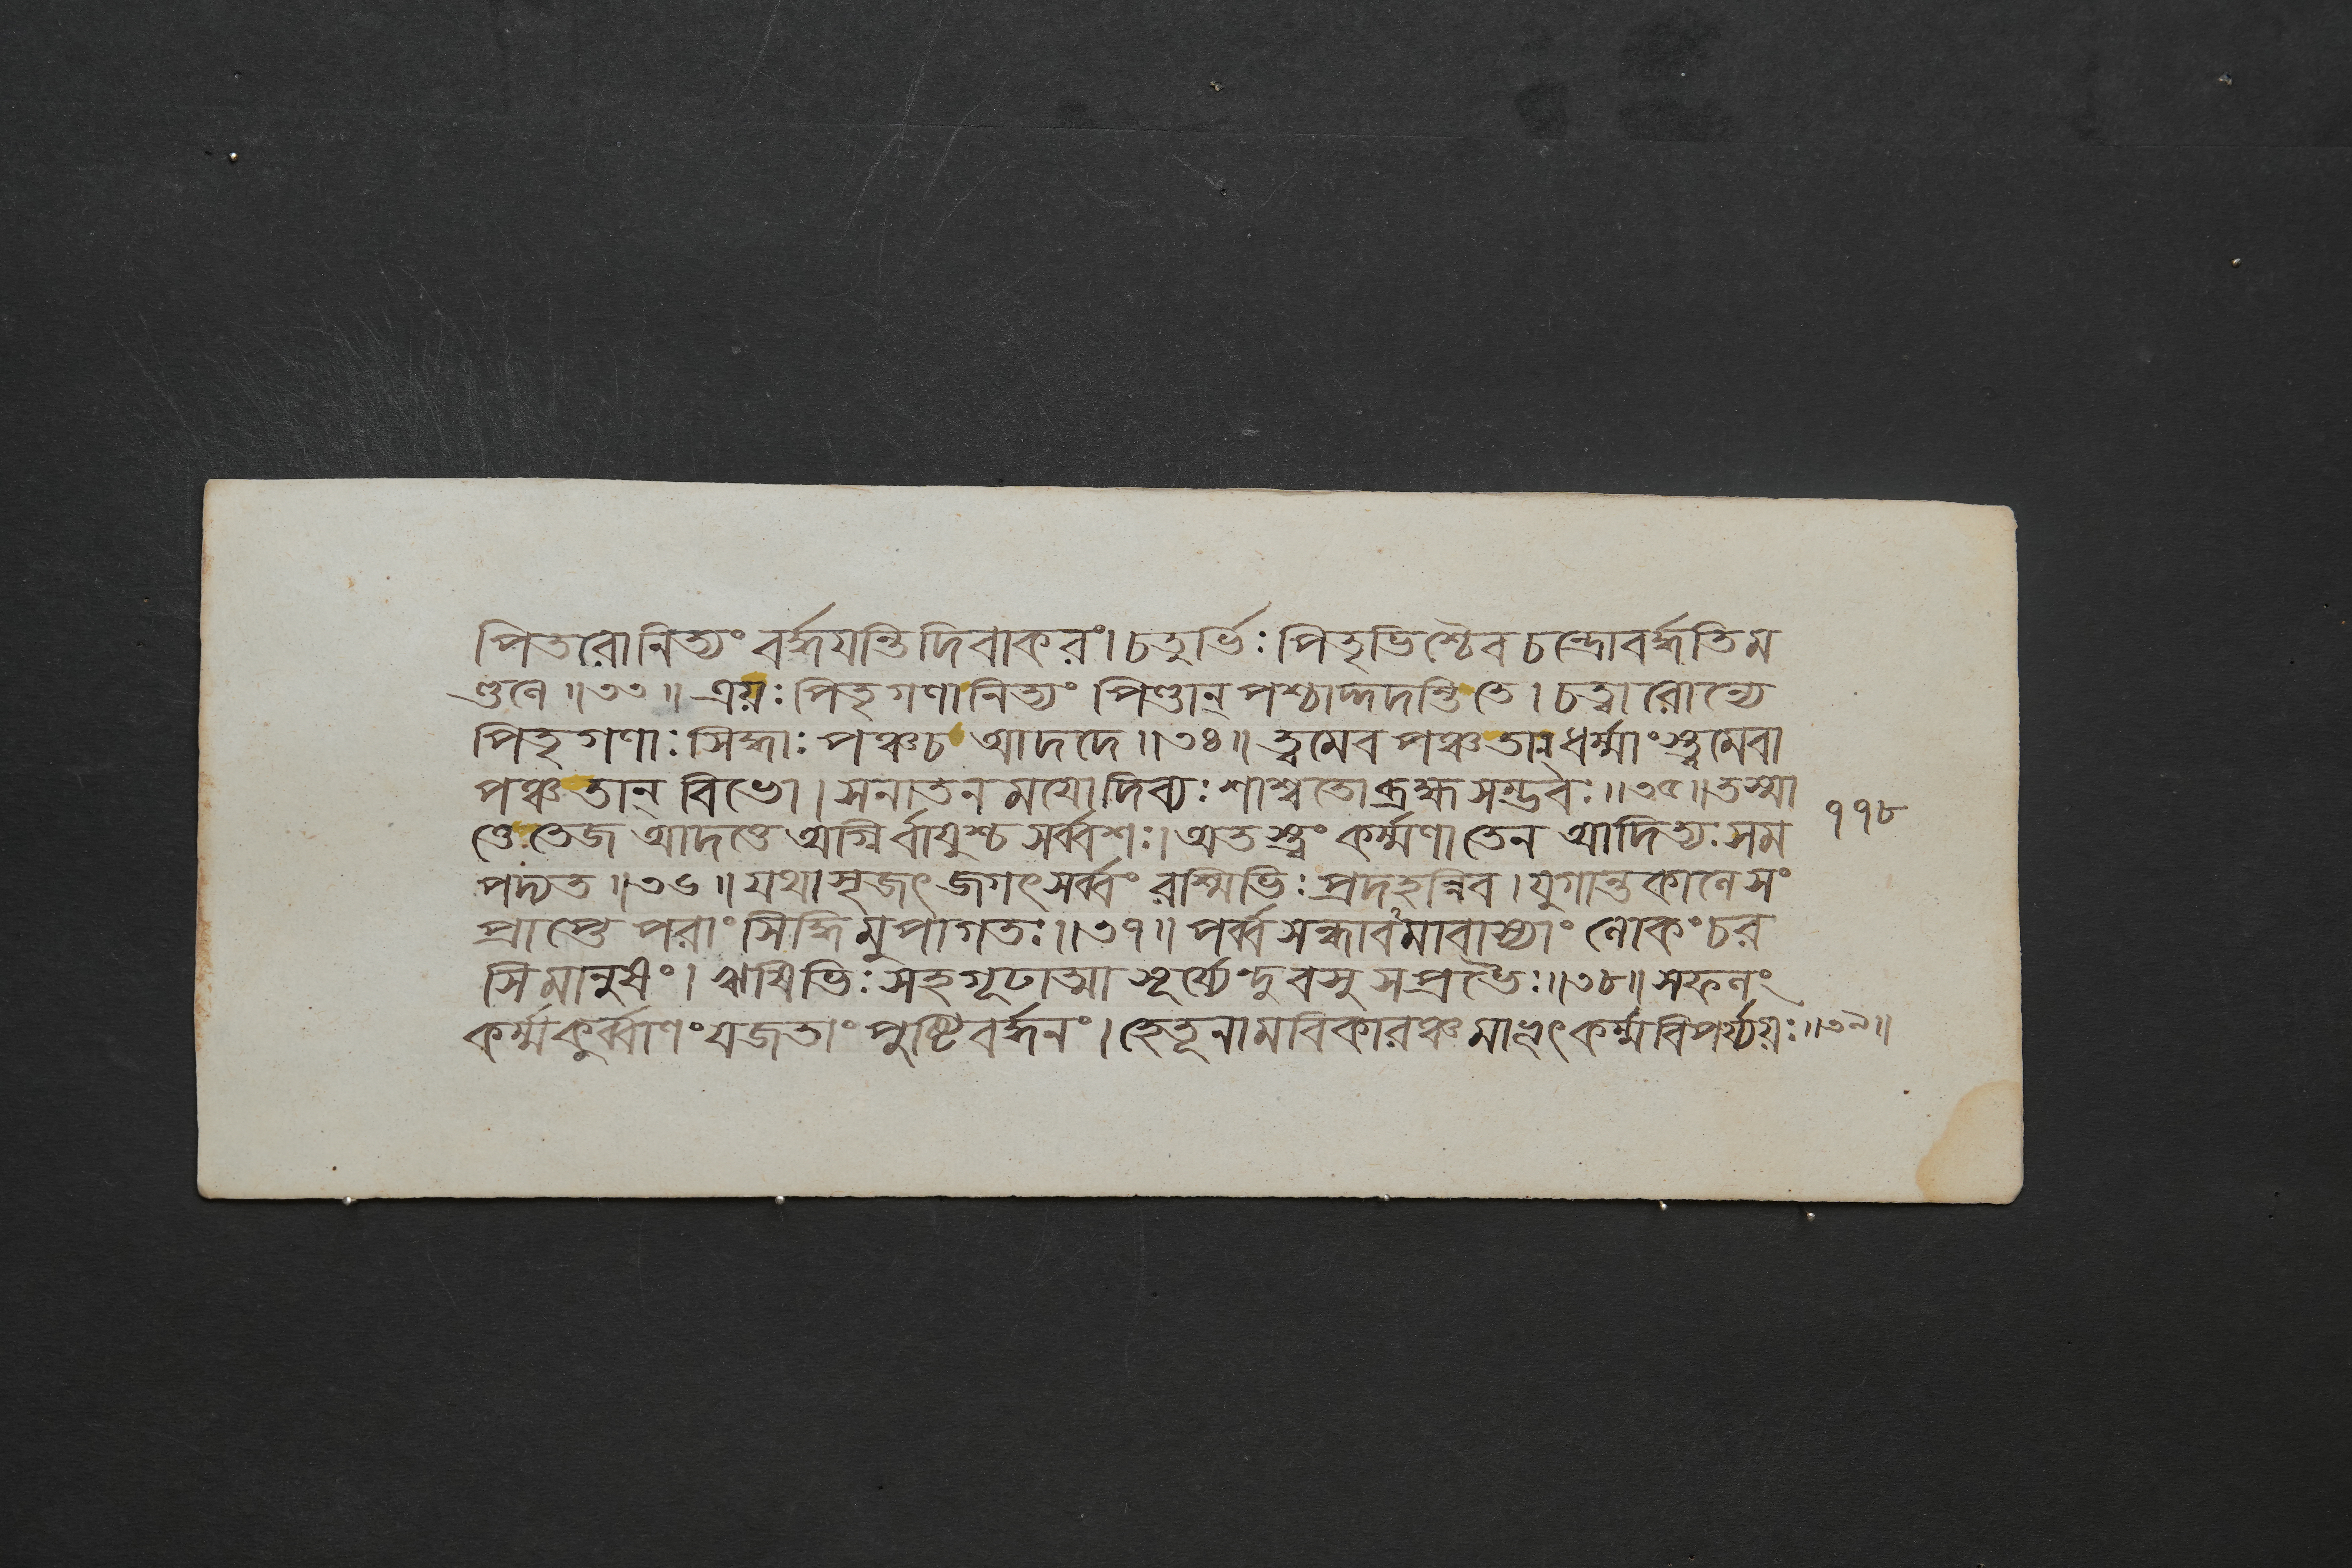 পিতরো নিত্যং বর্দ্ধয়ন্তি দিবাকরং। চতুর্ভিঃ পিতৃভিশ্চৈব চন্দ্রো বর্দ্ধতি ম
ণ্ডলে॥৩৩॥ ত্রয়ঃ পিতৃগণা নিত্যং পিণ্ডান্ পশ্চাদ্দদন্তি তে। চত্বারোন্যে
পিতৃগণাঃ সিদ্ধাঃ পঞ্চ চ আদদে॥৩৪॥ ত্বমেব পঞ্চ তান্ ধর্ম্মাংস্ত্বমেবা
পঞ্চ তান্ বিভো। সনাতনময়ো দিব্যঃ শাশ্বতো ব্রহ্মসম্ভবঃ॥৩৫॥ তস্মা
ত্তে তেজ আদত্তে অগ্নির্বায়ুশ্চ সর্ব্বশঃ। অতস্ত্বং কর্ম্মণা তেন আদিত্যঃ সম
পদ্যত॥৩৬॥ যথাসৃজৎ জগৎ সর্ব্বং রশ্মিভিঃ প্রদহন্নিব। যুগান্তকালে সং
প্রাপ্তে পরাং সিদ্ধিমুপাগতঃ॥৩৭॥ পর্ব্বসন্ধাবমাবাস্যাং লোকং চর
সি মানুষং। ঋষিভিঃ সহ গূঢাত্মা সূর্য্যেন্দুবসুসপ্রভৈঃ॥৩৮॥ সফলং
কর্ম্ম কুর্ব্বাণং যজতাং পুষ্টিবর্দ্ধনং। হেতূনামবিকারঞ্চ মাভূৎ কর্ম্মবিপর্য্যয়ঃ॥৩৯॥
১১৮